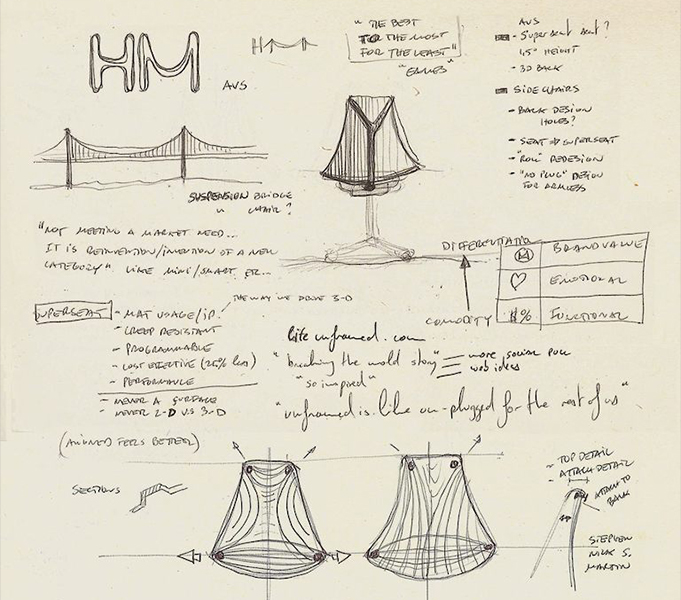 HM
HM
AVS
"THE BEST
TO THE MOST
FOR THE LEAST"
"EAMES"
AVS
- SUPERSEAT SEAT?
45° HEIGHT
- 3D BACK
SIDE CHAIRS
- BACK DESIGN
HOLES?
- SEAT => SUPERSEAT
- "ROLL" REDESIGN
- "NO PLUG" DESIGN
FOR ARMLESS
SUSPENSION BRIDGE
CHAIR?
"NOT MEETING A MARKET NEED...
IT IS REINVENTION/INVENTION OF A NEW
CATEGORY". LIKE MINI/SMART, ETC...
DIFFERENTIATED
COMODITY
M BRAND VALUE
EMOTIONAL
$% FUNCTIONAL
SUPERSEAT
- MAT USAGE/IP.
THE WAY WE DRIVE 3-D
- CREEP RESISTANT
- PROGRAMMABLE
- COST EFFECTIVE (25% less)
- PERFORMANCE
- NEVER A SURFACE
- NEVER 2-D VS 3-D
life unframed.com
"breaking the mold story"
more social pull
web ideas
"so inspired"
"unframed is like un-plugged for the rest of us"
(ALIGNED FEELS BETTER)
SECTIONS
- TOP DETAIL
- ATTACH DETAIL
ATTACH TO
BACK
STEPHEN
NICK S.
MARTIN